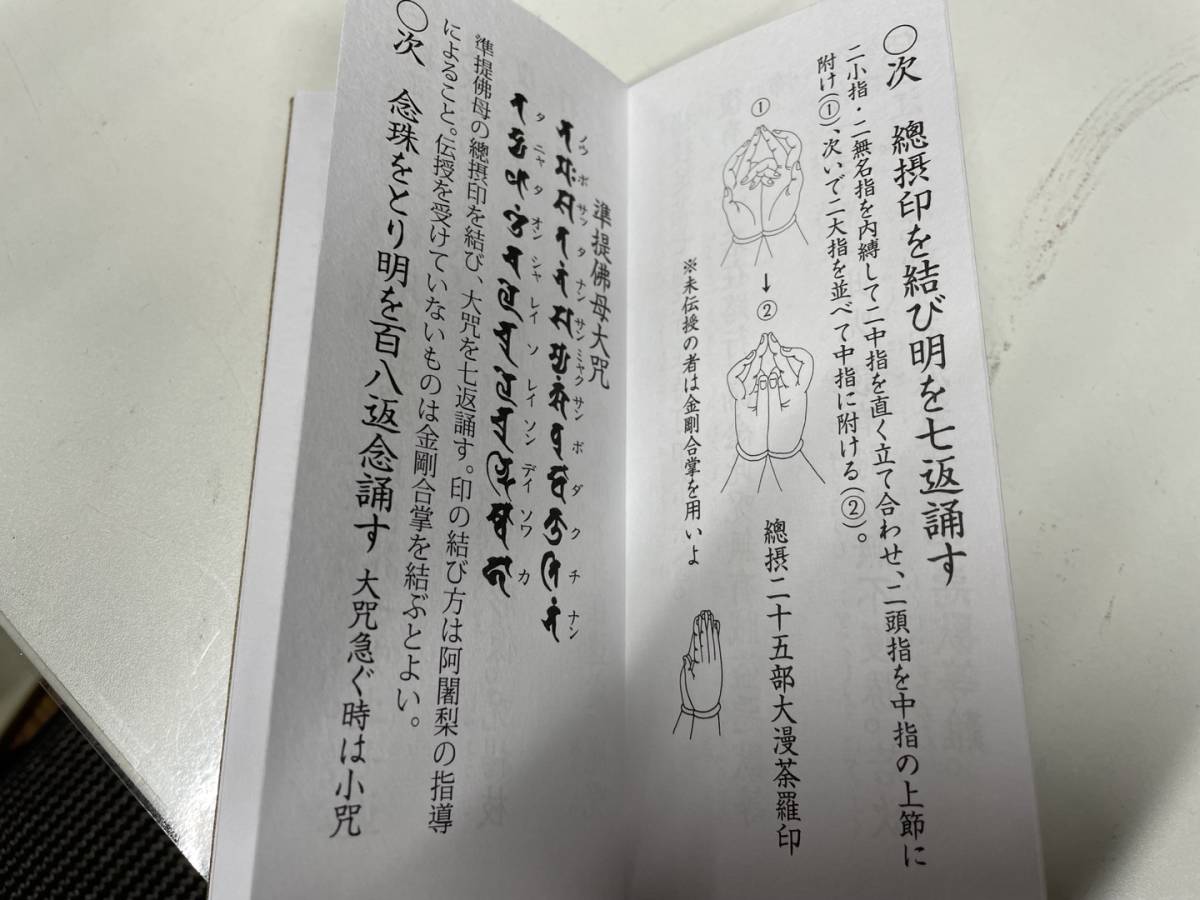 ○次 總摂印を結び明を七返誦す
二小指・二無名指を内縛して二中指を直く立て合わせ、二頭指を中指の上節に
附け(①)、次いで二大指を並べて中指に附ける(②)。
①
↓
②
總摂二十五部大漫荼羅印
※未伝授の者は金剛合掌を用いよ
準提佛母大咒
ノウ ボ サッ タ ナン サン ミャク サン ボ ダ ク チ ナン
タ ニャ タ オン シャ レイ ソ レイ ソン デイ ソワ カ
準提佛母の總摂印を結び、大咒を七返誦す。印の結び方は阿闍梨の指導
によること。伝授を受けていないものは金剛合掌を結ぶとよい。
○次 念珠をとり明を百八返念誦す 大咒急ぐ時は小咒